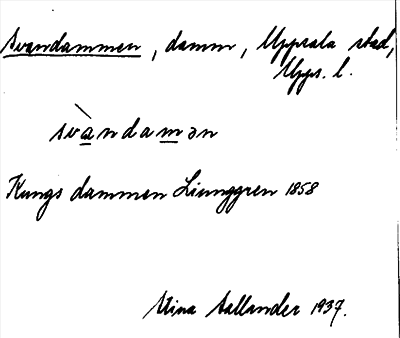 Svandammen, damm, Uppsala stad,
Upps. l.
svàndamən
Kungs dammen Ljunggren 1858
Stina Sallander 1937.